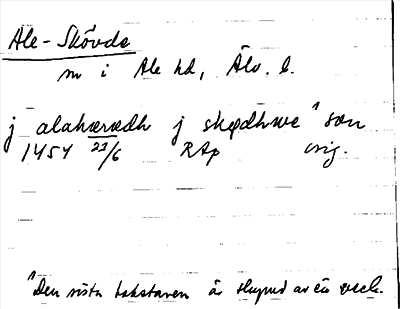 Ale-Skövde
sn i Ale hd, Älv. l.
j alahæradh j skødhwe¹ son
1454 23/6 RAp orig.
¹Den sista bokstaven är skymd av en veck.